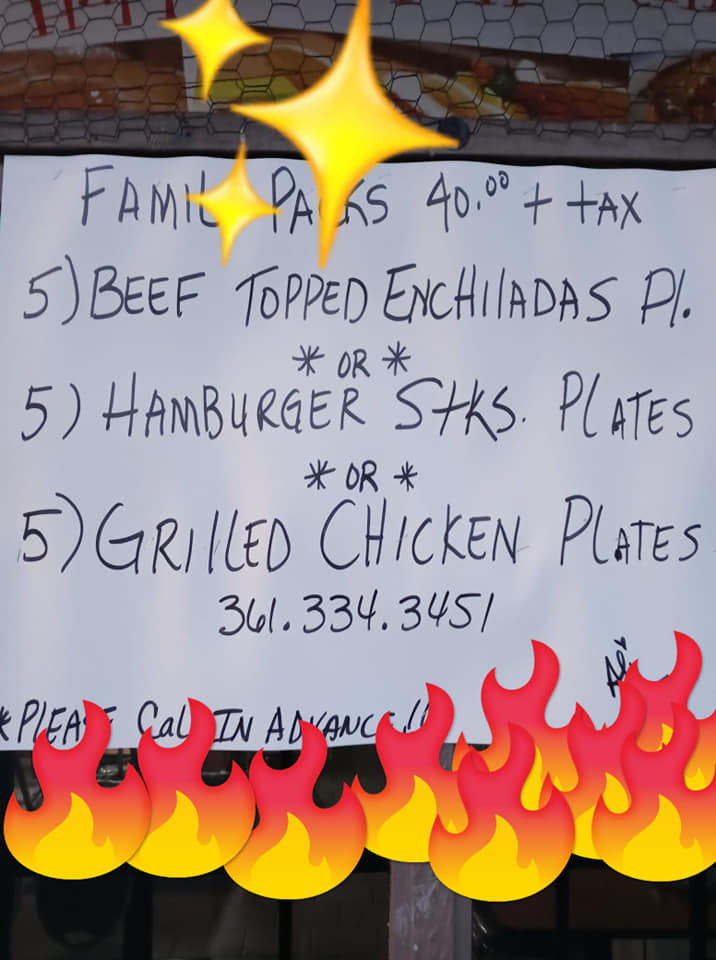 FAMIL PACKS 40.00 + tAX
5) BEEF TOPPED ENCHILADAS Pl.
* OR *
5) HAMBURGER Stks. PLATES
* OR *
5) GRILLED CHICKEN PLATES
361.334.3451
Ali
* PLEASE Call IN ADVANCE!!